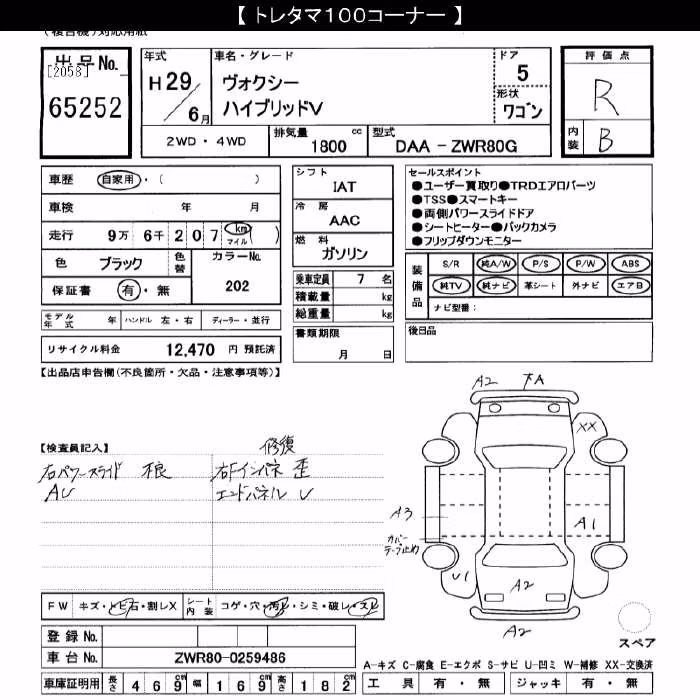 【 トレタマ100コーナー 】
(複合機)対応用紙
出品No.
[2058]
65252
年式
H29/6月
車名・グレード
ヴォクシー
ハイブリッドV
ドア
5
形状
ワゴン
評価点
R
内装
B
2WD・4WD
排気量 1800 cc
型式 DAA－ZWR80G
車歴 自家用・( )
車検 年 月
走行 9万 6千 2 0 7 km マイル ( )
色 ブラック
色替
カラーNo. 202
保証書 有・無
モデル年式 年
ハンドル 左・右
ディーラー・並行
リサイクル料金 12,470 円 預託済
シフト
IAT
冷房
AAC
燃料
ガソリン
乗車定員 7 名
積載量 kg
総重量 kg
書類期限
月 日
セールスポイント
●ユーザー買取り●TRDエアロパーツ
●TSS●スマートキー
●両側パワースライドドア
●シートヒーター●バックカメラ
●フリップダウンモニター
装備品
S/R 純A/W P/S P/W ABS
純TV 純ナビ 革シート 外ナビ エアB
ナビ型番：
後日品
【出品店申告欄(不良箇所・欠品・注意事項等)】
【検査員記入】
修復
右パワースライド 不良
右Fインパネ 歪
AU
エンドパネル U
A2
下A
XX
A3
カバーテープ止め
A1
U1
A2
A2
スペア
FW キズ・トビ石・割レX
シート内装 コゲ・穴・汚レ・シミ・破レ・スレ
登録No.
車台No. ZWR80-0259486
車庫証明用 長さ 469cm 幅 169cm 高さ 182cm
A-キズ C-腐食 E-エクボ S-サビ U-凹ミ W-補修 XX-交換済
工具 有・無 ジャッキ 有・無